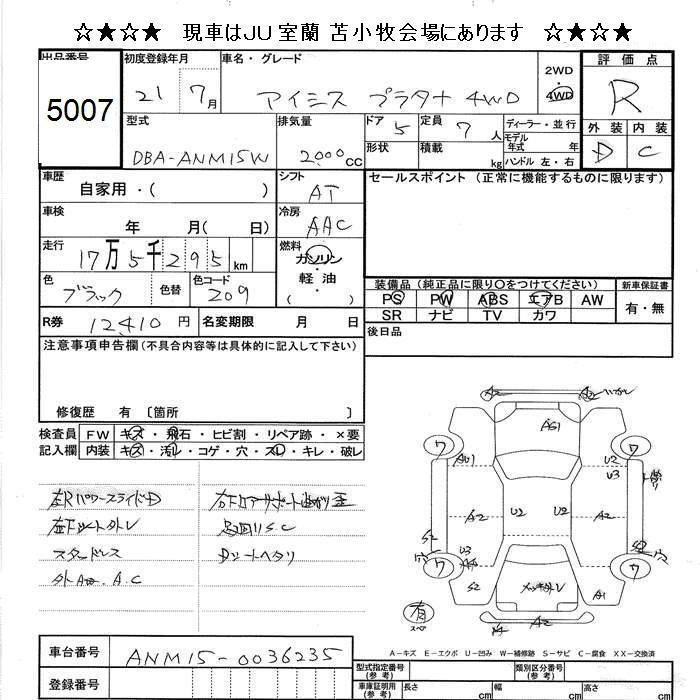 ☆★☆★ 現車はJU室蘭 苫小牧会場にあります ☆★☆★
出品番号
5007
初度登録年月
21 7月
車名・グレード
アイシス プラタナ 4WD
2WD
4WD
評価点
R
外装 内装
D C
型式
DBA-ANM15W
排気量
2000cc
ドア 5
形状
定員 7人
積載 kg
ディーラー・並行
モデル年式 年
ハンドル 左・右
車歴
自家用・( )
シフト
AT
セールスポイント (正常に機能するものに限ります)
車検
年 月( 日)
冷房
AAC
走行
17万5千295km
燃料
ガソリン
軽油
( ・ )
色
ブラック
色替
色コード
209
装備品 (純正品に限り〇をつけてください)
PS PW ABS エアB AW
SR ナビ TV カワ
新車保証書
有・無
R券 12410円
名変期限 月 日
後日品
注意事項申告欄(不具合内容等は具体的に記入して下さい)
修復歴 有 〔箇所 〕
検査員記入欄
FW キズ・飛石・ヒビ割・リペア跡・×要
内装 キズ・汚れ・コゲ・穴・スレ・キレ・破レ
左RパワースライドD
スタッドレス
S.C
Dシートヘタリ
A.C
AG1
AU1
U2
U3
A2
U2
U2
A2
A2
S2
U3
S2
穴
穴
S2
A1
ワ
ワ
ワ
ワ
有
スペア
A-キズ E-エクボ U-凹み W-補修跡 S-サビ C-腐食 XX-交換済
車台番号
ANM15-0036235
登録番号
型式指定番号(参考)
類別区分番号(参考)
車庫証明用(参考)
長さ cm
幅 cm
高さ cm